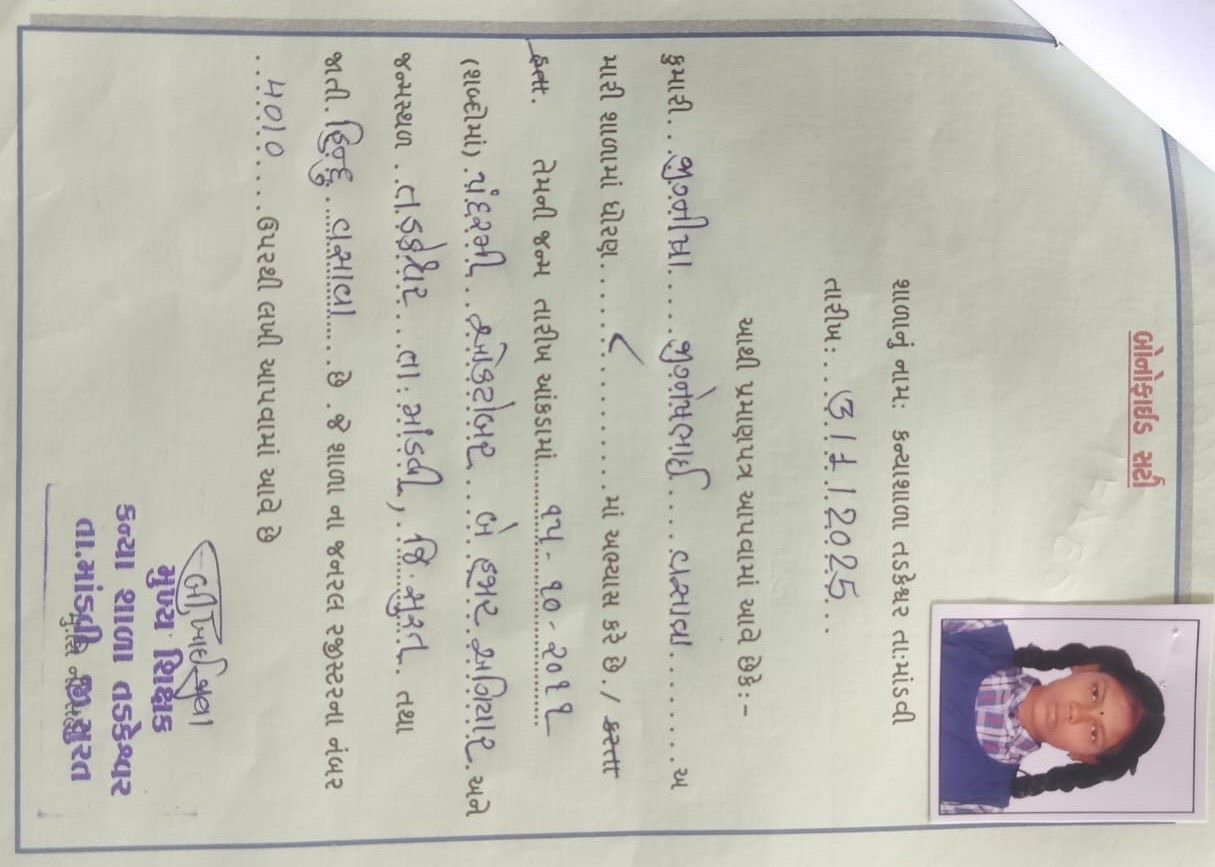 બોનોફાઈડ સર્ટી
શાળાનું નામ: કન્યાશાળા તડકેશ્વર તા:માંડવી
તારીખ:...3/7/2025...
આથી પ્રમાણપત્ર આપવામાં આવે છેકે:-
કુમારી... ... વસાવા........અ
મારી શાળામાં ધોરણ......માં અભ્યાસ કરે છે./ કરતા
હતા. તેમની જન્મ તારીખ આંકડામાં......૧૫-૧૦-૨૦૧૧
(શબ્દોમાં).પંદરમી..ઓક્ટોબર...બે હજાર અગિયાર.અને
જન્મસ્થળ..તડકેશ્વર..તા:માંડવી, જિ:સુરત. તથા
જાતી.હિન્દુ વસાવા.....છે .જે શાળા ના જનરલ રજીસ્ટરના નંબર
....4010....ઉપરથી લખી આપવામાં આવે છે
મુખ્ય શિક્ષક
કન્યા શાળા તડકેશ્વર
તા.માંડવી જી સુરત